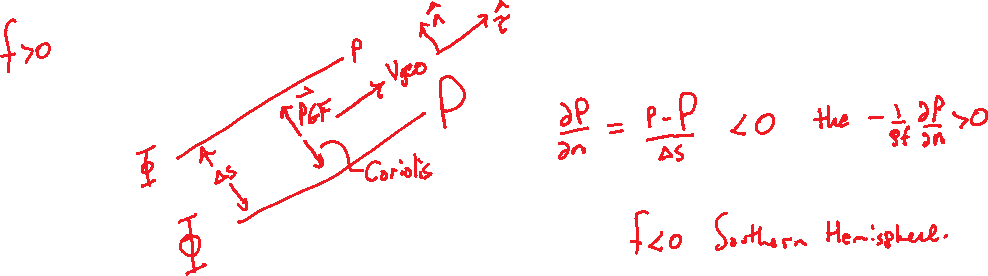 f>0
P
n̂
τ̂
Vgeo
PGF
P
Φ
Δs
Coriolis
Φ
∂P/∂n = (P - P)/Δs < 0 the -1/(ρf) ∂P/∂n > 0
f<0 Southern Hemisphere.